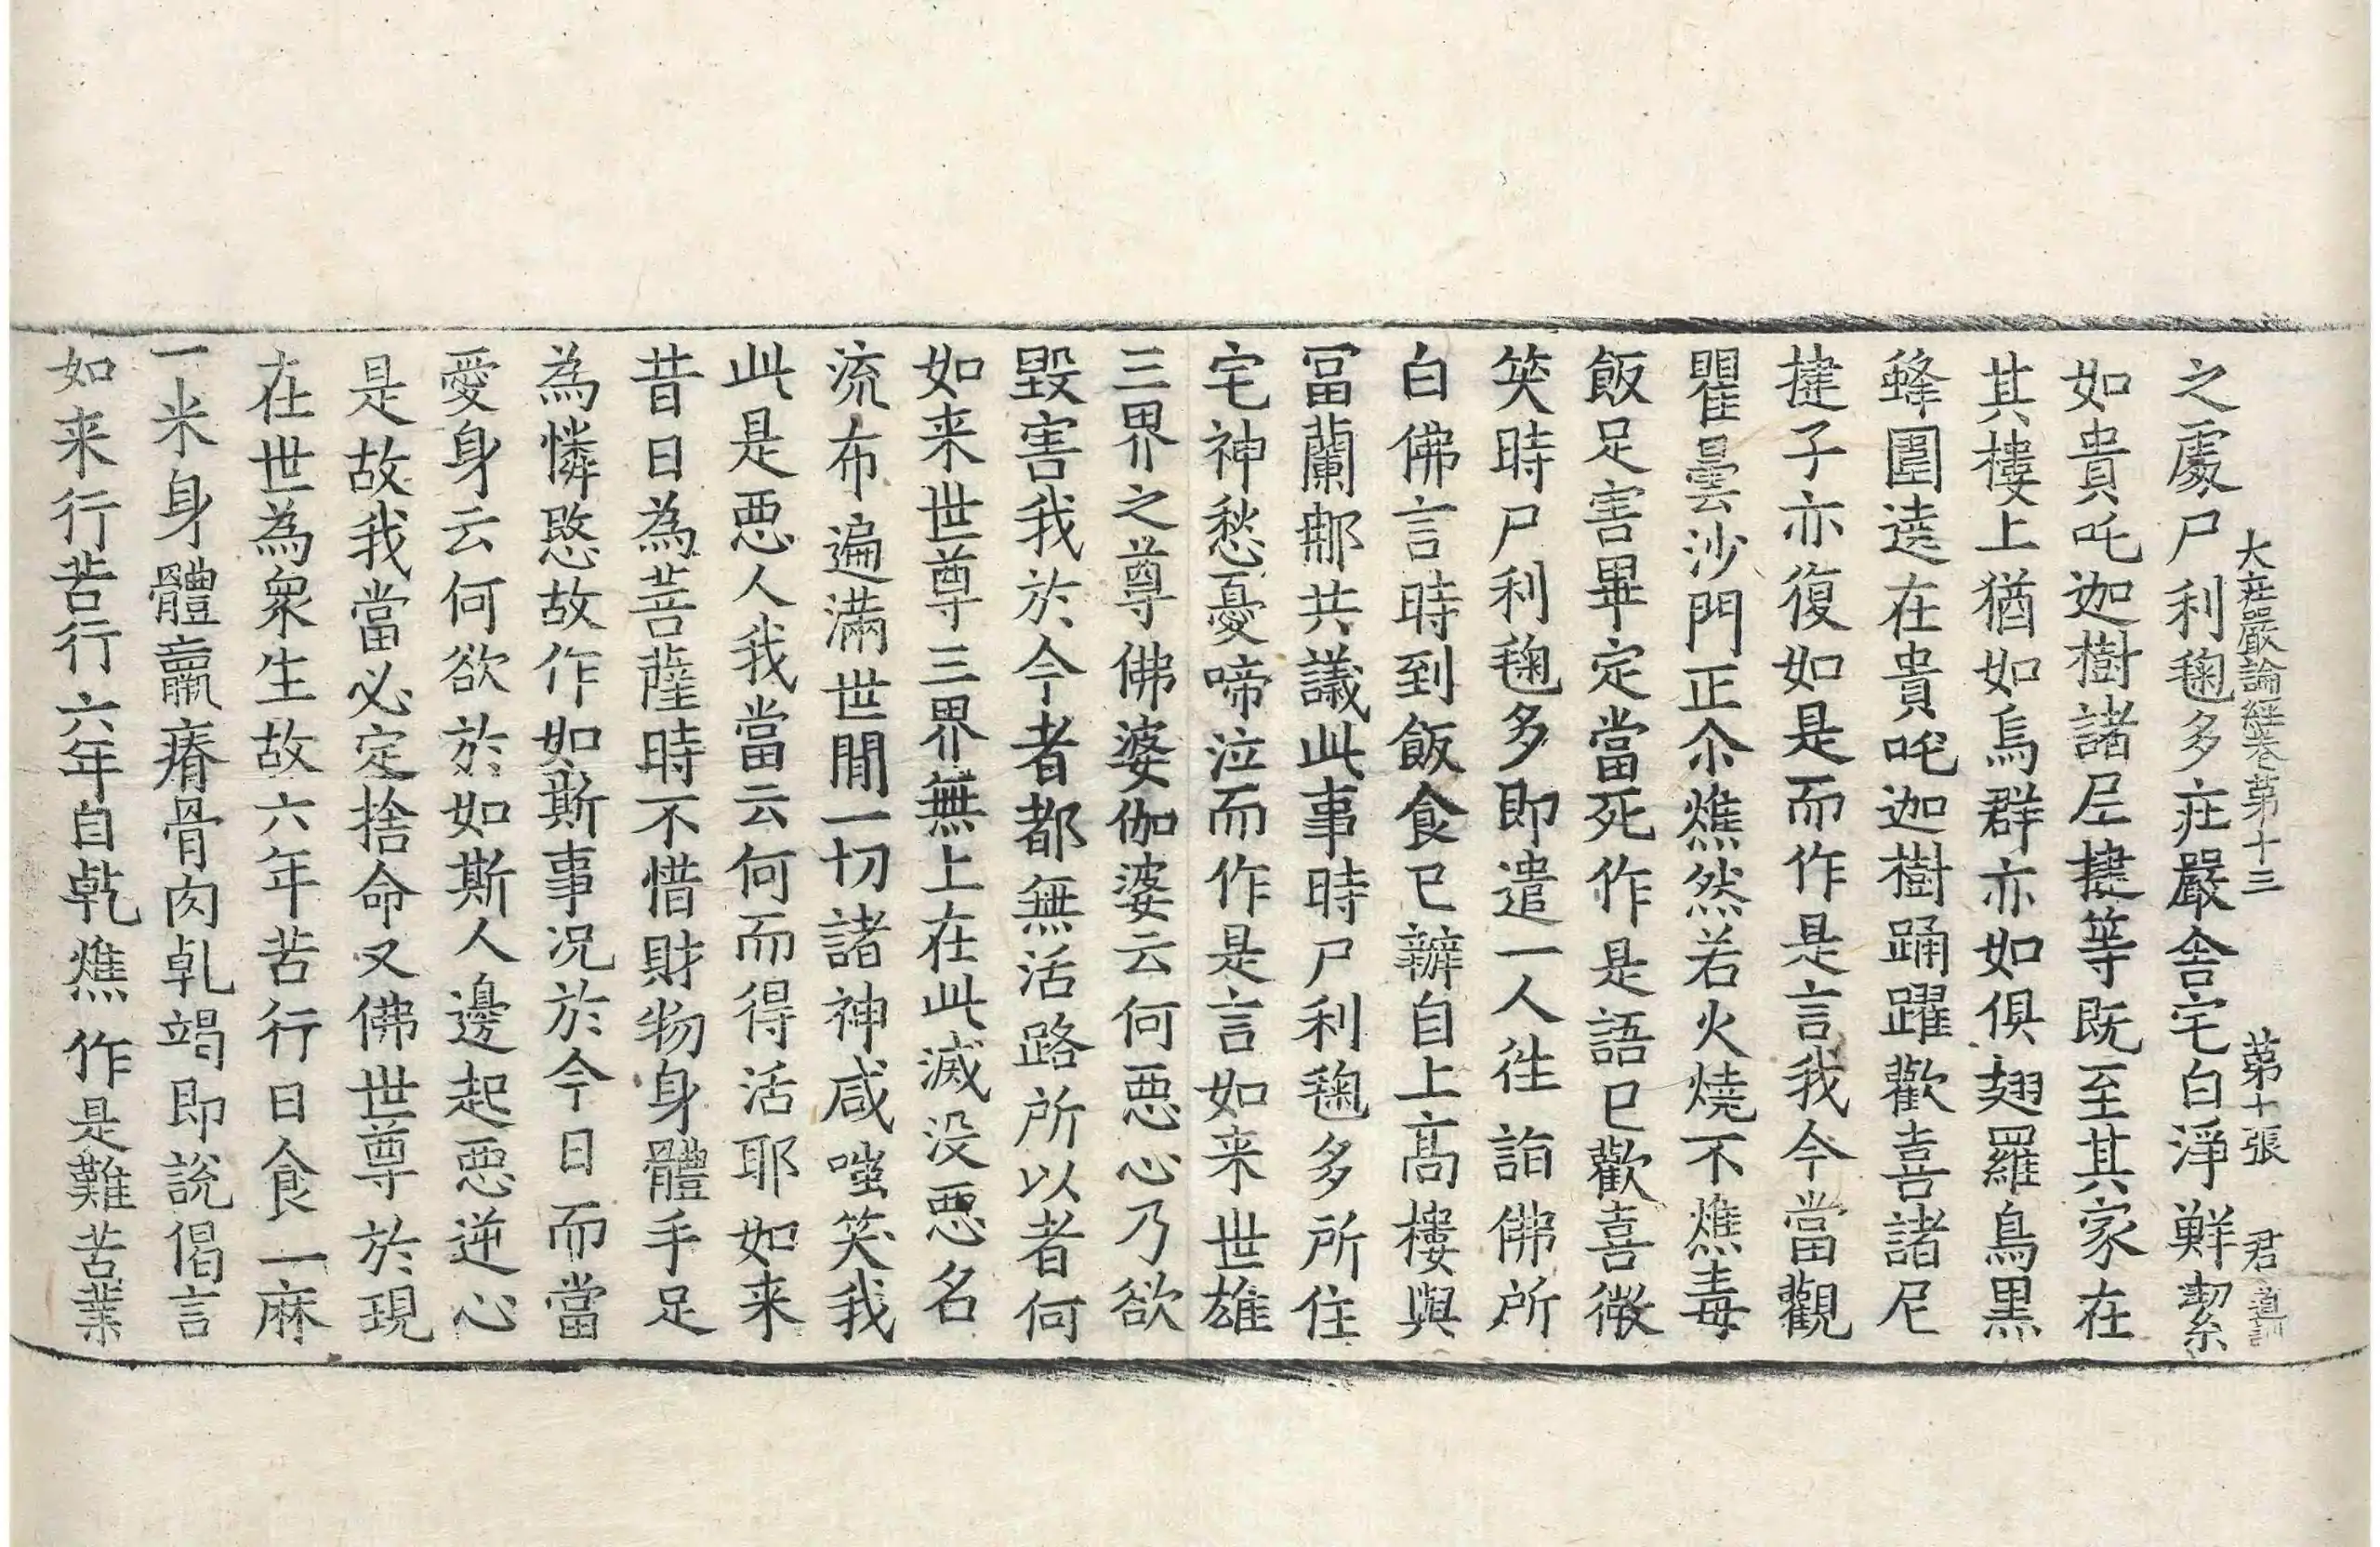 大莊嚴論經卷第十三　第十張　君
之處尸利毱多莊嚴舍宅白淨鮮潔
如貴吒迦樹諸尼揵等既至其家在
其樓上猶如烏群亦如俱翅羅鳥黑
蜂圍遶在貴吒迦樹踊躍歡喜諸尼
揵子亦復如是而作是言我今當觀
瞿曇沙門正尒燋然若火燒不燋毒
飯足害畢定當死作是語已歡喜微
笑時尸利毱多即遣一人往詣佛所
白佛言時到飯食已辦自上高樓與
冨蘭那共議此事時尸利毱多所住
宅神愁憂啼泣而作是言如来世雄
三界之尊佛婆伽婆云何惡心乃欲
毀害我於今者都無活路所以者何
如来世尊三界無上在此滅没惡名
流布遍滿世間一切諸神咸嗤笑我
此是惡人我當云何而得活耶如来
昔日為菩薩時不惜財物身體手足
為憐愍故作如斯事况於今日而當
愛身云何欲於如斯人邊起惡逆心
是故我當必定捨命又佛世尊於現
在世為衆生故六年苦行日食一麻
一米身體羸瘠骨肉乹竭即說偈言
如来行苦行六年自乾燋作是難苦業